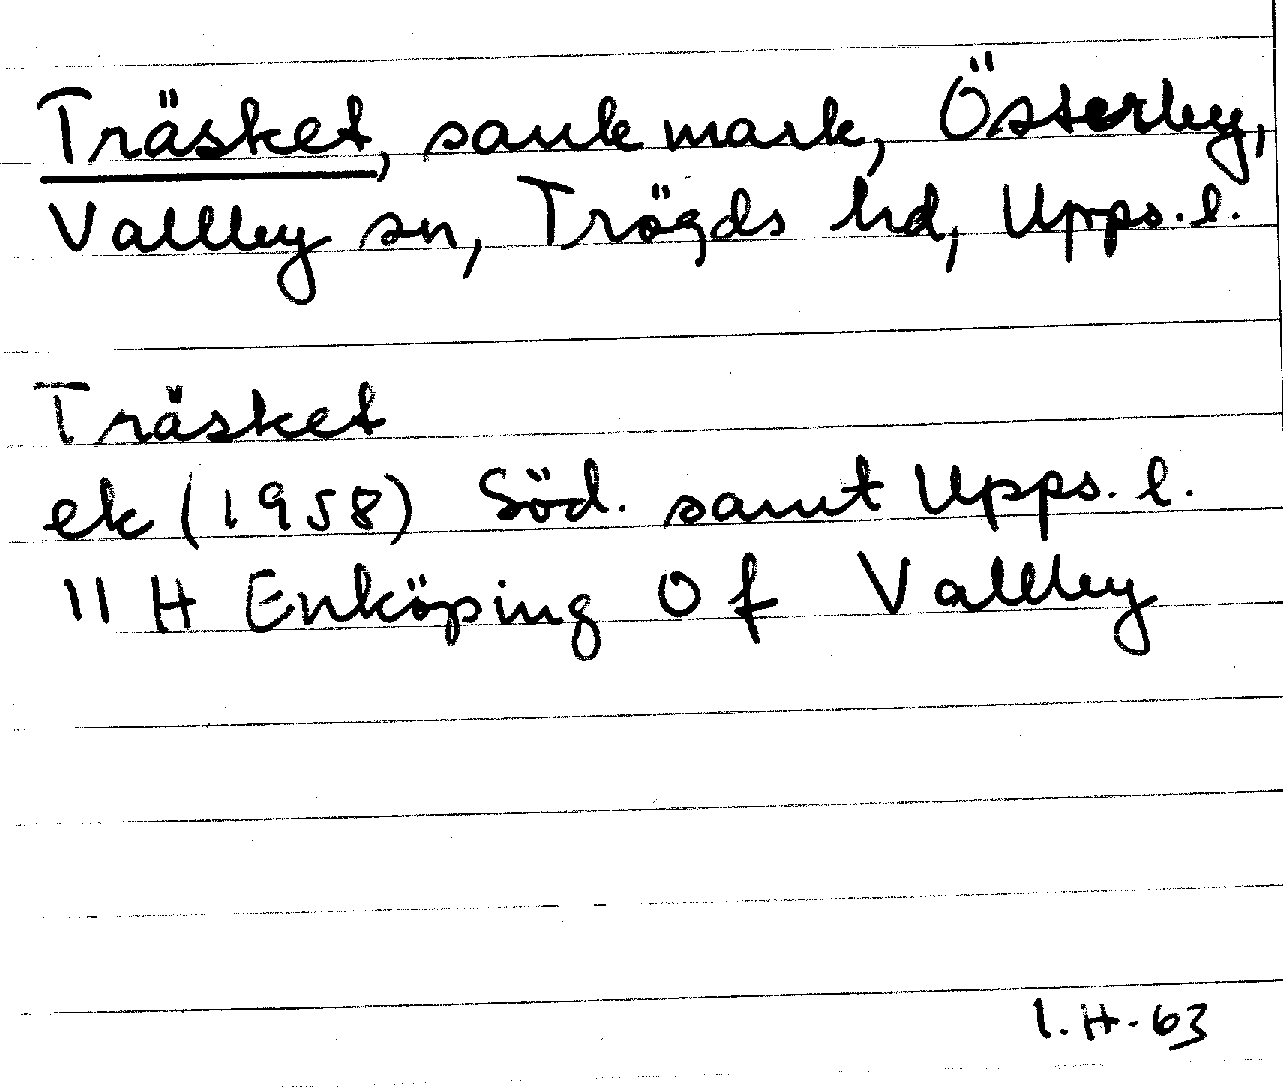 Träsket, sank mark, Österby,
Vallby sn, Trögds hd, Upps. l.
Träsket
ek (1958) Söd. samt Upps. l.
11 H Enköping 0 f Vallby
I. H-63